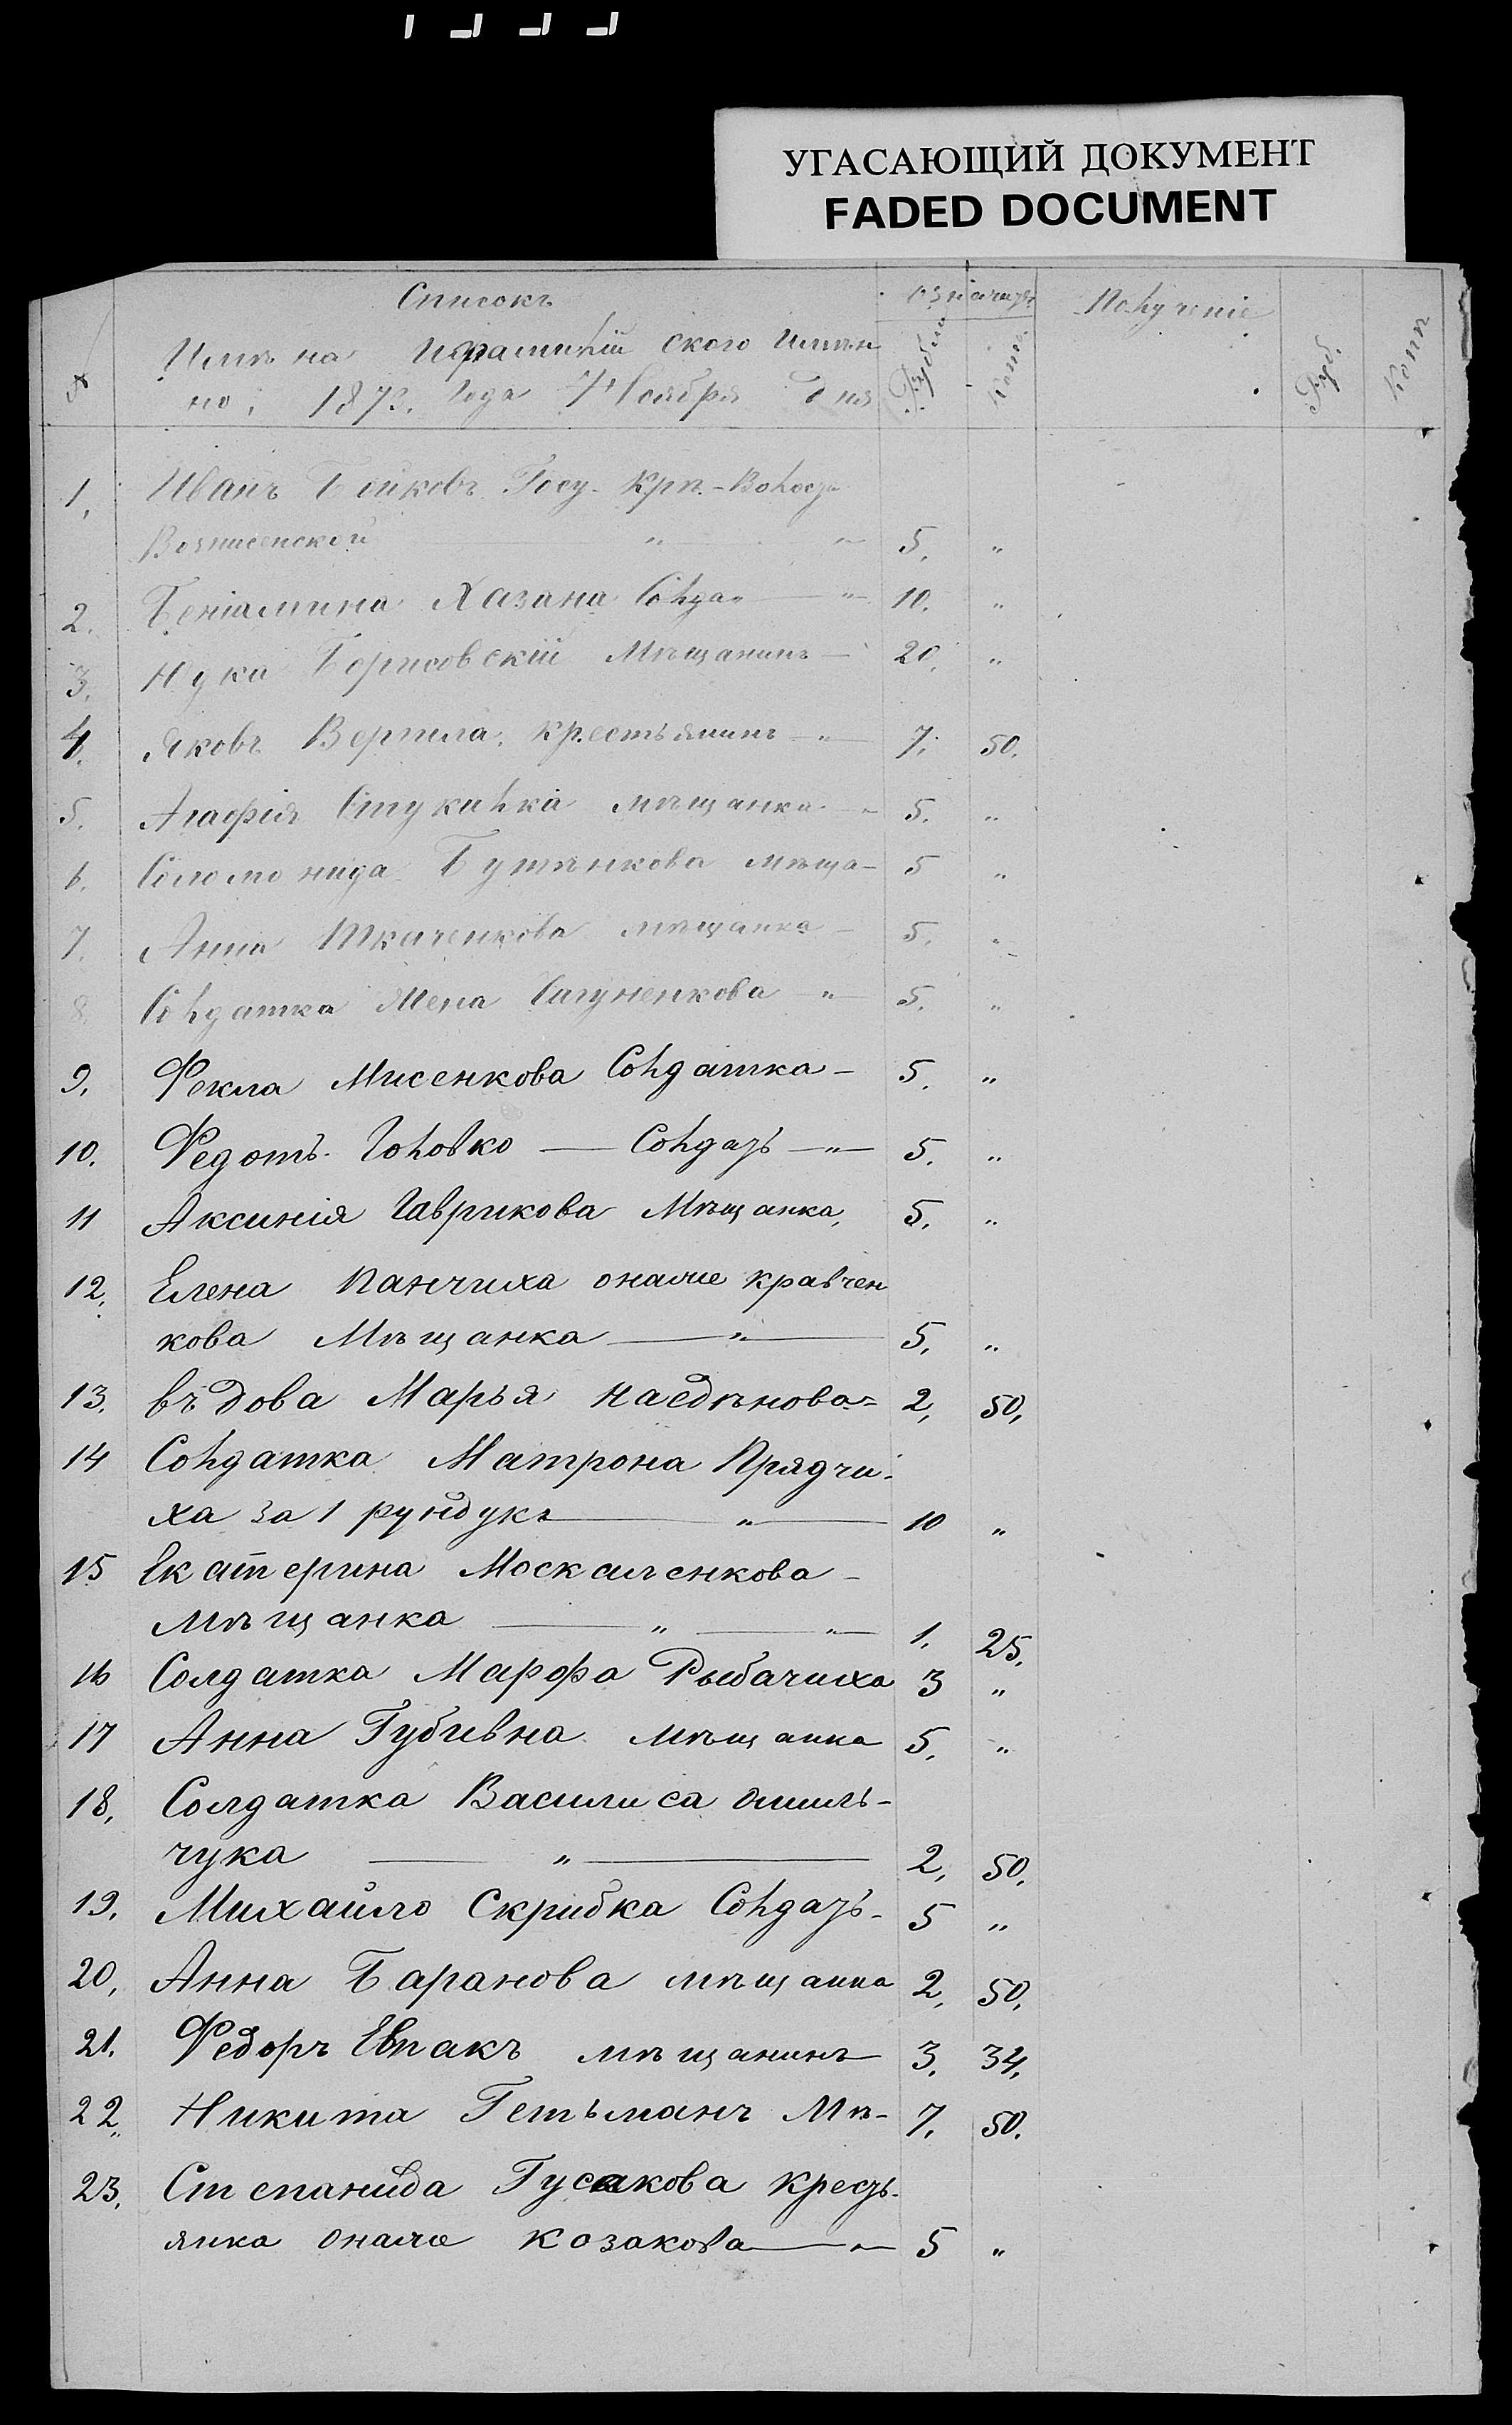 УГАСАЮЩИЙ ДОКУМЕНТ
FADED DOCUMENT
Списокъ
Получение
ского
но, 187 года Ноября дня
Рубли Копе. Руб. Копп
1, Иванъ Бойковъ Госу. Крп. - Волосзи
Вознисенской " " 5, "
2. Беніамина Хазана Солда " " 10. "
3. Нука Борисовскій Мѣщанинъ — 20, "
4. Яковъ Вергила, крестьянинъ " 7, 50.
5. Агафія Стукалка мѣщанка — 5. "
6. Соломонида Бутѣнкова мѣща- 5 "
7. Анна Ткаченкова мѣщанка — 5. "
8. Солдатка Мена — " — 5. "
9, Фекла Мисенкова Солдатка — 5. "
10. Федотъ Головко — Солдатъ — " — 5. "
11 Аксинія Гаврикова Мѣщанка, 5. "
12, Елена Панчиха онаже кравчен
кова Мѣщанка — " — 5, "
13. въдова Марья Насдѣнова= 2, 50,
14 Солдатка Матрона Прядчи-
ха за 1 рундукъ — " — 10 "
15 Екатерина Москаленкова —
мѣщанка — " — " — 1, 25,
16 Солдатка Марфа Рыбачиха 3 "
17 Анна Губивна мѣщанка 5, "
18, Солдатка Василиса Ошиль-
чука — " — 2, 50,
19, Михайло Скрибка Солдатъ- 5 "
20, Анна Баранова мѣщанка 2, 50,
21. Федоръ Евпакъ мѣщанинъ 3, 34,
22, Никита Гетьманъ Мѣ- 7, 50.
23, Степанида Гусакова кресть-
янка онаже козакова — " — 5 "